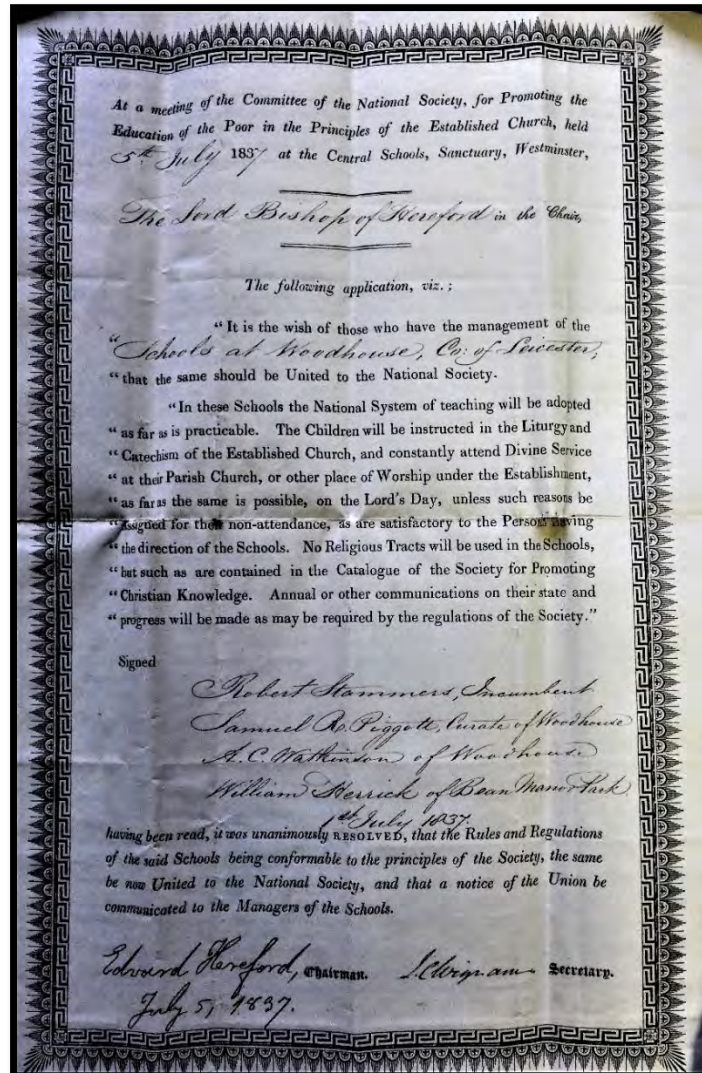 At a meeting of the Committee of the National Society, for Promoting the
Education of the Poor in the Principles of the Established Church, held
5th July 1837 at the Central Schools, Sanctuary, Westminster,
The Lord Bishop of Hereford in the Chair,
The following application, viz.;
"It is the wish of those who have the management of the
"Schools at Woodhouse, Co: of Leicester,
"that the same should be United to the National Society.
"In these Schools the National System of teaching will be adopted
"as far as is practicable. The Children will be instructed in the Liturgy and
"Catechism of the Established Church, and constantly attend Divine Service
"at their Parish Church, or other place of Worship under the Establishment,
"as far as the same is possible, on the Lord's Day, unless such reasons be
"assigned for their non-attendance, as are satisfactory to the Persons having
"the direction of the Schools. No Religious Tracts will be used in the Schools,
"but such as are contained in the Catalogue of the Society for Promoting
"Christian Knowledge. Annual or other communications on their state and
"progress will be made as may be required by the regulations of the Society."
Signed
Robert Stammers, Incumbent
Samuel R. Piggott, Curate of Woodhouse
A. C. Watkinson of Woodhouse
William Herrick of Bean Manor Park
1st July 1837.
having been read, it was unanimously RESOLVED, that the Rules and Regulations
of the said Schools being conformable to the principles of the Society, the same
be now United to the National Society, and that a notice of the Union be
communicated to the Managers of the Schools.
Edward Hereford, Chairman. Secretary.
July 5, 1837.